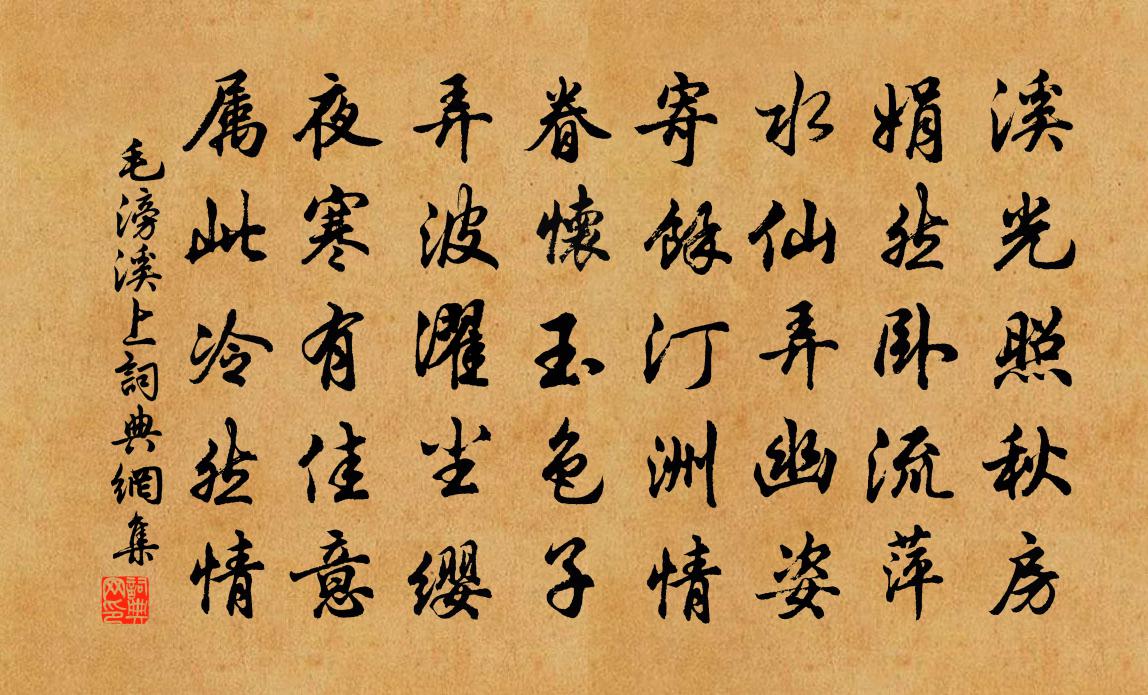 溪光照秋房
娟然卧流萍
水仙弄幽姿
寄餘汀洲情
眷懷玉色子
弄波濯尘缨
夜寒有佳意
属此冷然情
毛滂溪上詞典網集
詞典網印